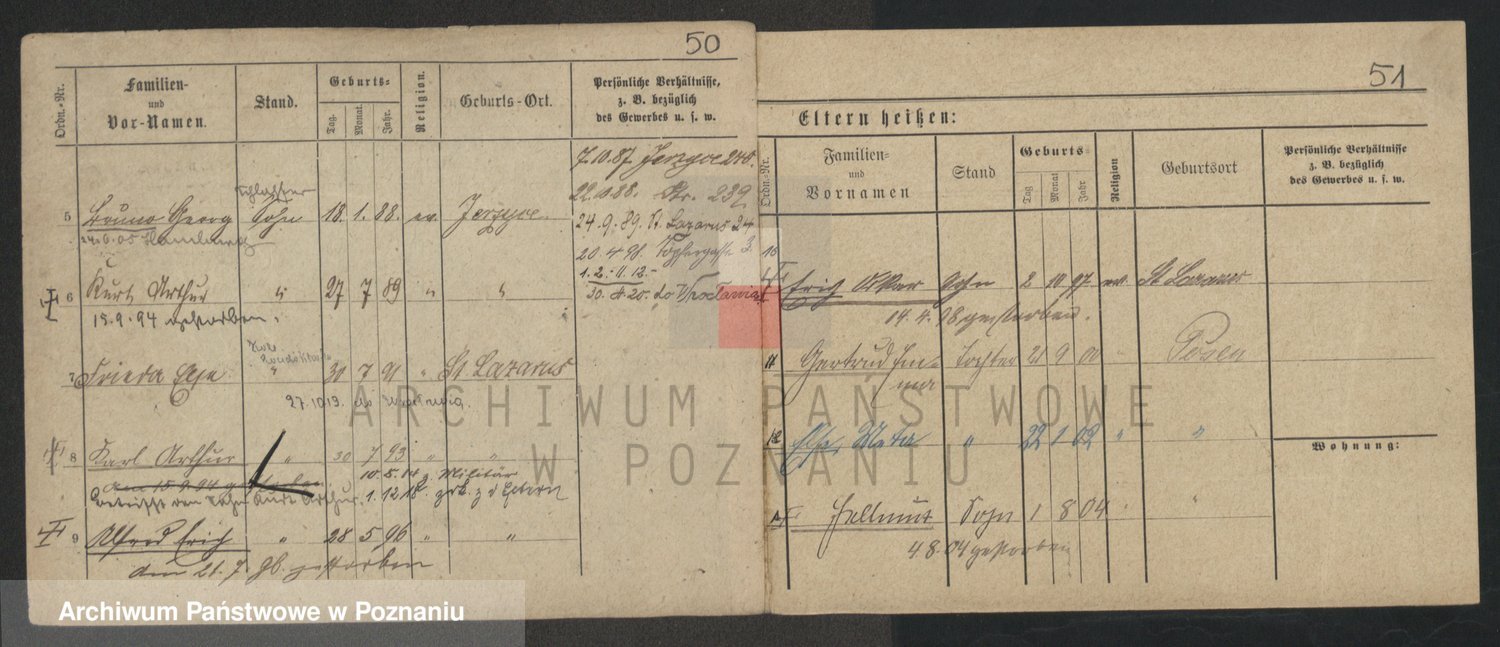 50
Ordn.-Nr.
Familien-
und
Vor-Namen.
Stand.
Geburts-
Tag.
Monat.
Jahr.
Religion.
Geburts-Ort.
Persönliche Verhältnisse,
z. B. bezüglich
des Gewerbes u. s. w.
7.10.87. Jerzyce 248.
22.10.88. 239.
24.9.89. St. Lazarus 24
Schlosser
5 Bruno Georg Sohn 18. 1. 08. ev. Jerzyce
24.6.05 Hamburg
1.2.11.12.-
6 Kurt Arthur " 27 7 89 " "
15.9.94 gestorben.
7 Frieda Else " 30 7 91 " St Lazarus
27.10 19. do
8 Karl Arthur " 30 7 93 " "
den 15.9.94 gestorben 10.5.14 z. Militär
betrifft den Sohn Kurt Arthur. 1.12.18. zrk. z d Eltern
9 Alfred Erich " 28 5 96 " "
den 21.7. gestorben
51
Eltern heißen:
Ordn.-Nr.
Familien-
und
Vornamen
Stand
Geburts-
Tag
Monat
Jahr
Religion
Geburtsort
Persönliche Verhältnisse
z. B. bezüglich
des Gewerbes u. s. w.
Wohnung:
Oskar Sohn 2 10 97 ev. St Lazarus
14.4.98 gestorben.
11 Gertrud Em- Tochter 21 9 00 " Posen
ma
12 Else Meta " 22 1 02 " "
Hellmut Sohn 1 8 04 "
4 8.04 gestorben
ARCHIWUM PAŃSTWOWE
W POZNANIU
Archiwum Państwowe w Poznaniu